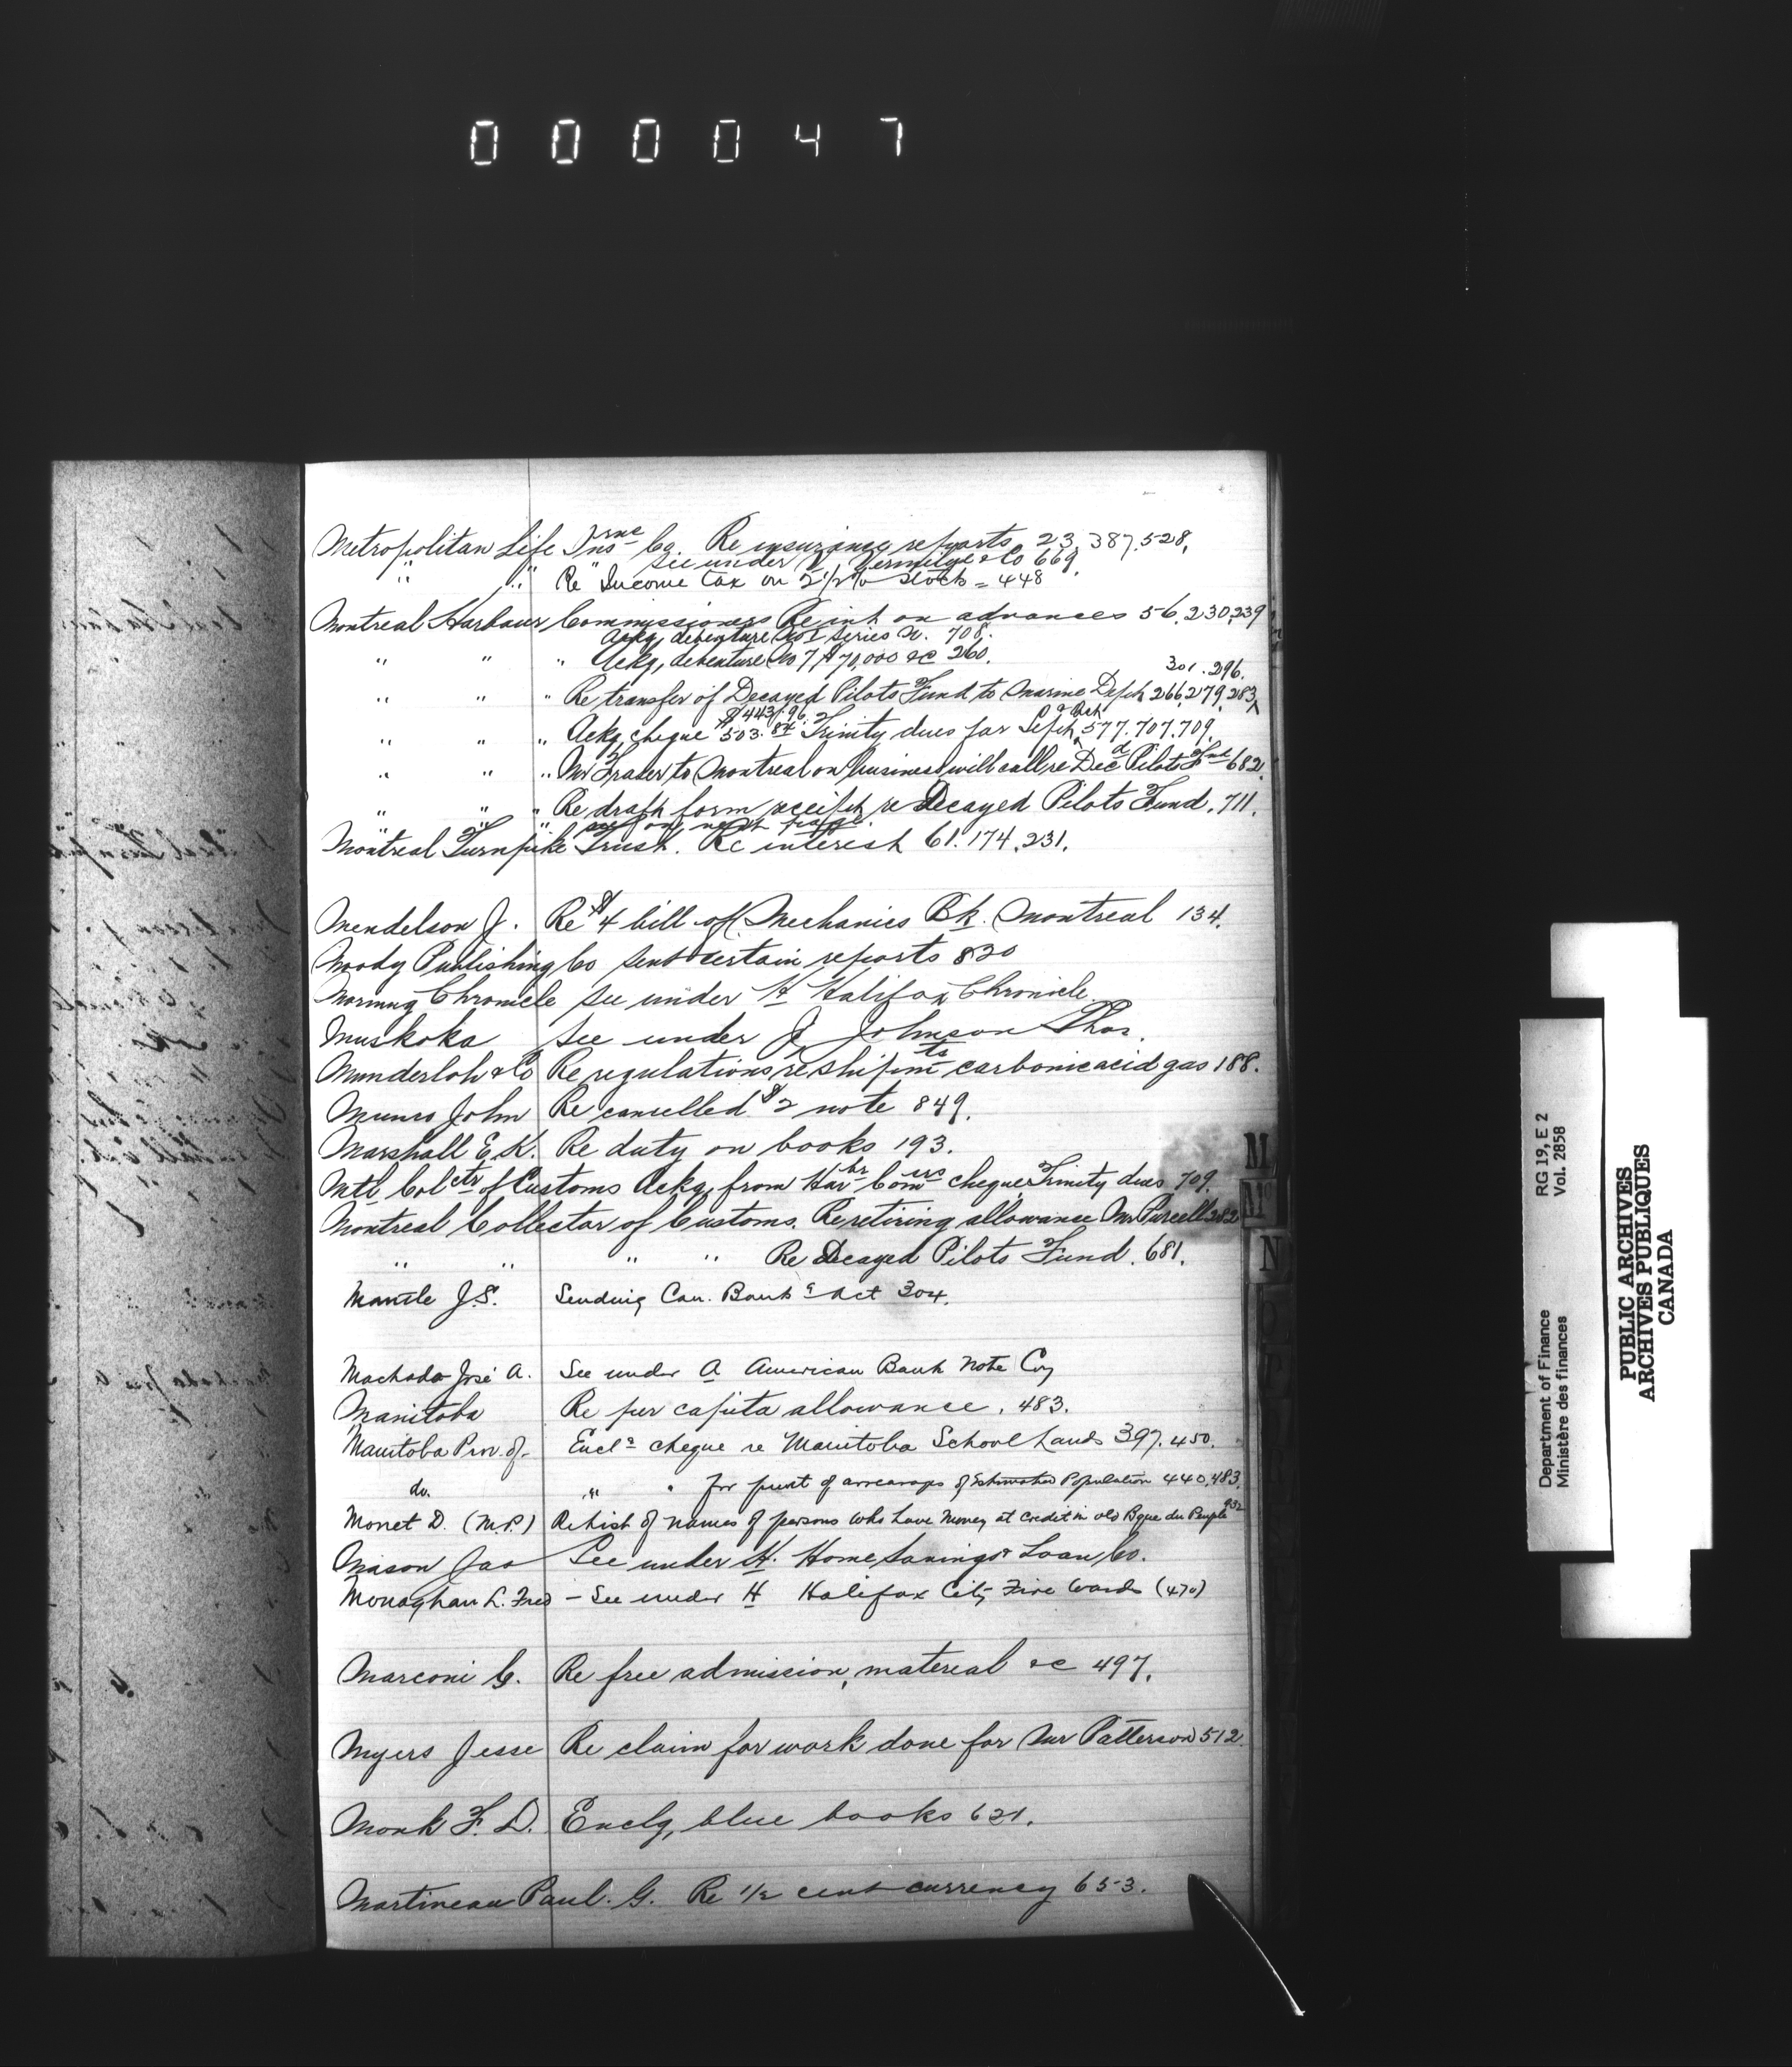 000047
Metropolitan Life Insrnce Co. Re insurance reports 23, 387, 528,
" " " See under V Vermilye & Co 669.
Re Income tax on 2½% Stock = 448
Montreal Harbour Commissioners Re int on advances 56, 230, 239
Ackg, debenture No 1 series N. 708.
" " " Ackg, debenture No 7 $70,000 &c 260.
301. 296.
" " " Re transfer of Decayed Pilots Fund to Marine Dept 266, 279, 283,
$443.96 & Oct
" " " Ackg, cheque 503.84 Trinity dues for Sept, 577. 707. 709.
" " " Mr Fraser to Montreal on business will call re Decd Pilots Fnd 682.
" " " Re draft form receipt re Decayed Pilots Fund. 711.
" " " see on next page.
Montreal Turnpike Trust. Re interest 61. 174. 231.
Mendelson J. Re $4 bill of Mechanics Bk. Montreal 134.
Moody Publishing Co sent certain reports 820
Morning Chronicle see under H Halifax Chronicle.
Muskoka see under J Johnson Thos.
Munderloh & Co Re regulations re shipmts carbonic acid gas 188.
Munro John Re cancelled $2 note 849.
Marshall E. K. Re duty on books 193.
Mtl Colctr of Customs Ackg, from Harbr Comrs cheque Trinity dues 709
Montreal Collector of Customs. Re retiring allowance Mr Purcell 282
" " " " Re Decayed Pilots Fund. 681.
Mantle J. S. Sending Can. Bank g Act 304.
Machado José A. See under A American Bank Note Coy
Manitoba Re per capita allowance. 483.
Manitoba Prov. of Encl g cheque re Manitoba School Lands 397. 450.
do. " " for pmnt of arrearages of Estimated Population 440, 483.
Monet D. (M.P.) Re list of names of persons who have money at credit in old Bque du Peuple 932
Mason Jas See under H. Home Savings & Loan Co.
Monaghan L. Fred – See under H Halifax City Fire Wards (470)
Marconi G. Re free admission, material &c 497.
Myers Jesse Re claim for work done for Mr Patterson 512.
Monk F. D. Enclg, blue books 621.
Martineau Paul. G. Re ½ cent currency 653.
M
Mc
N
Department of Finance RG 19, E 2
Ministère des finances Vol. 2858
PUBLIC ARCHIVES
ARCHIVES PUBLIQUES
CANADA